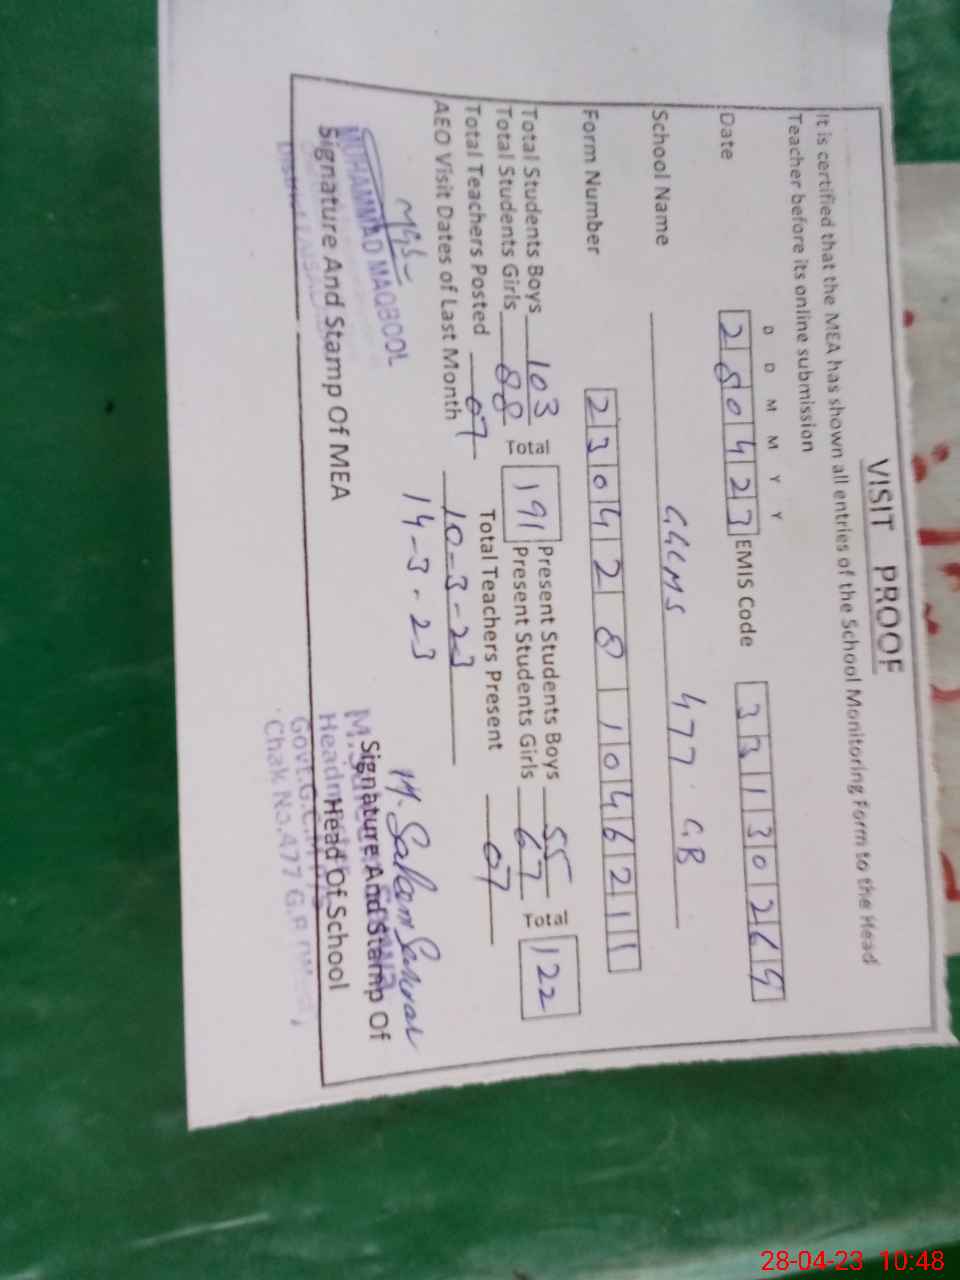 VISIT PROOF
It is certified that the MEA has shown all entries of the School Monitoring Form to the Head
Teacher before its online submission
D D M M Y Y
Date 280423 EMIS Code 33130269
School Name GGCMS 477 GB
Form Number 2304281046211
Total Students Boys 103 Total 191 Present Students Boys 55 Total 122
Total Students Girls 88 Present Students Girls 67
Total Teachers Posted 07 Total Teachers Present 07
AEO Visit Dates of Last Month 10-3-23
14-3-23
MUHAMMAD MAQBOOL
Signature And Stamp Of MEA
Signature And Stamp Of
Head Of School
Govt.G.C.M
Chak No.477 G.B
28-04-23 10:48